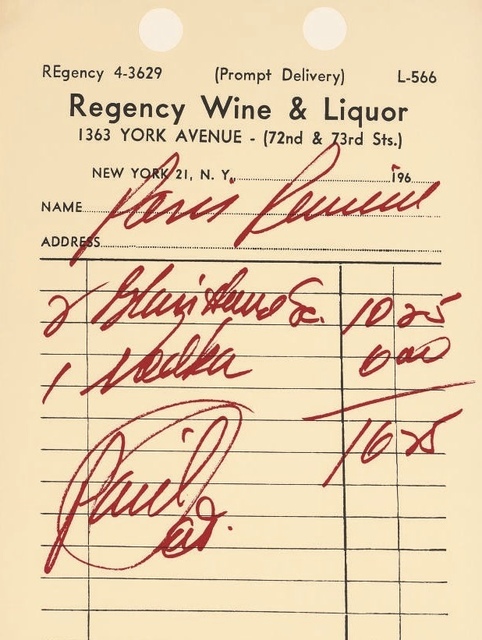 REgency 4-3629 (Prompt Delivery) L-566
Regency Wine & Liquor
1363 YORK AVENUE - (72nd & 73rd Sts.)
NEW YORK 21, N. Y. 196
NAME Paris
ADDRESS
2 10 25
1 Vodka 6 00
16 25
Paid